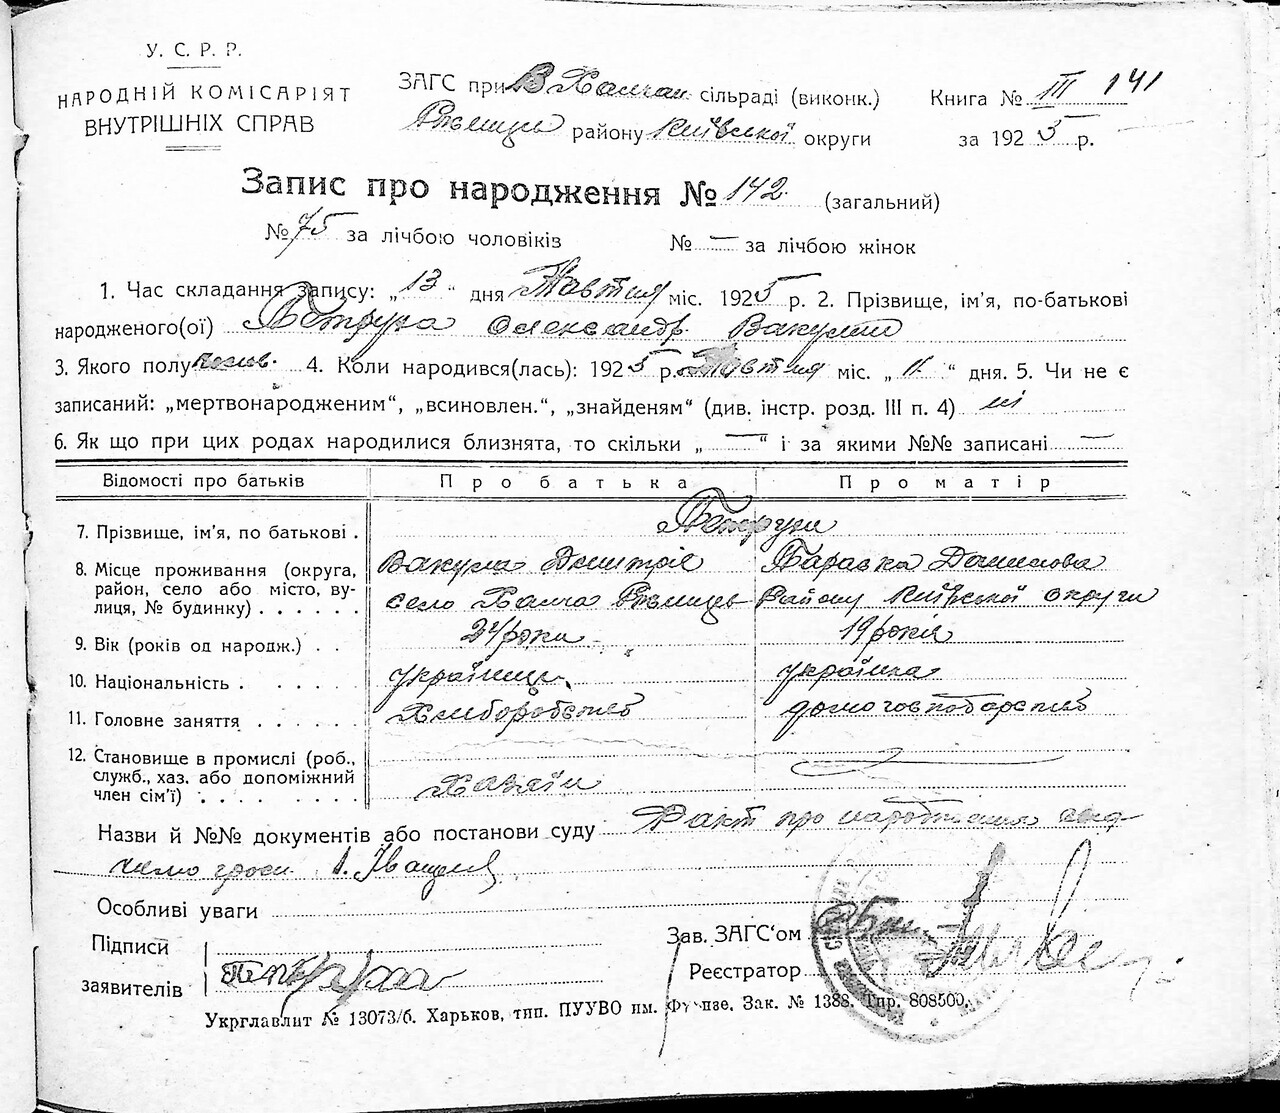 У. С. Р. Р.
НАРОДНІЙ КОМІСАРІЯТ
ВНУТРІШНІХ СПРАВ
ЗАГС при В Халчан сільраді (виконк.)
району Київської округи
Книга № III 141
за 1925 р.
Запис про народження № 142 (загальний)
№ 75 за лічбою чоловіків № — за лічбою жінок
1. Час складання запису: „13“ дня Жовтня міс. 1925 р. 2. Прізвище, ім'я, по-батькові
народженого(ої) Петруха Олександр Вакулин
3. Якого полу 4. Коли народився(лась): 1925 р. Жовтня міс. „11“ дня. 5. Чи не є
записаний: „мертвонародженим“, „всиновлен.“, „знайденям“ (див. інстр. розд. III п. 4) ні
6. Як що при цих родах народилися близнята, то скільки „—“ і за якими №№ записані —
Відомості про батьків Про батька Про матір
7. Прізвище, ім'я, по батькові . Петрухи
Вакула Дмитріє Параска Данилова
8. Місце проживання (округа, район, село або місто, вулиця, № будинку) . . . . . . село Халча Району Київської округи
9. Вік (років од народж.) . . 24 роки 19 років
10. Національність . . . . . . українець українка
11. Головне заняття . . . . . . Хліборобство домогосподарство
12. Становище в промислі (роб., служб., хаз. або допоміжний член сім'ї) . . . . . . Хазяїн
Назви й №№ документів або постанови суду Факт про народження
Особливі уваги
Підписи
заявителів Петруха
Зав. ЗАГС'ом
Реєстратор
Укрглавлит № 13073/б. Харьков, тип. ПУУВО им. Фрунзе. Зак. № 1388. Тир. 808500.